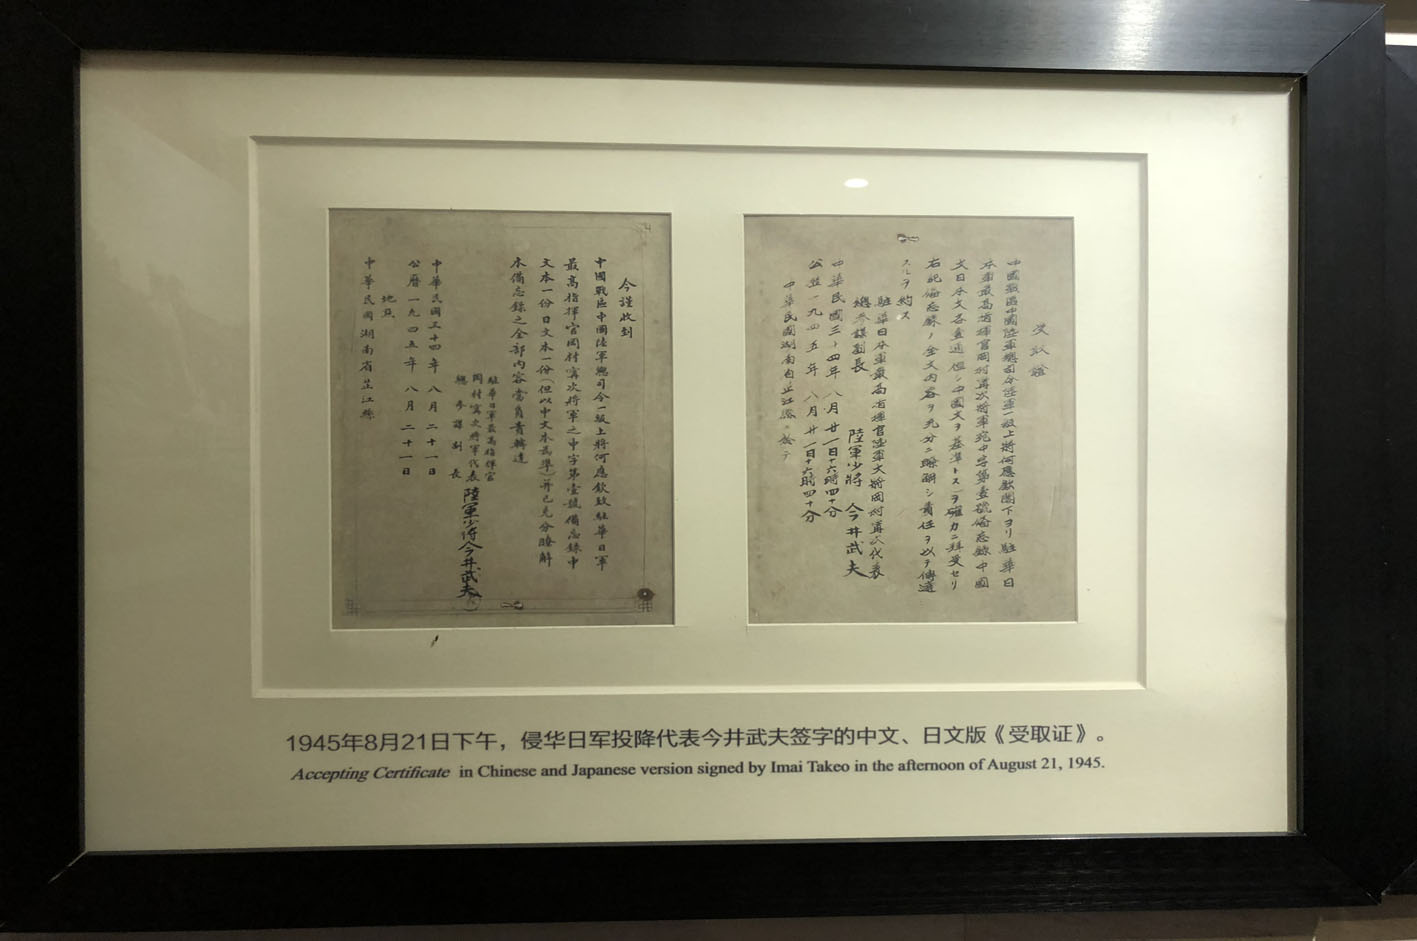 今謹收到
中國戰區中國陸軍總司令一級上將何應欽致駐華日軍
最高指揮官岡村寧次將軍之中字第壹號備忘錄中
文本一份日文本一份(但以中文本為準)并已充分瞭解
本備忘錄之全部內容當負責轉達
駐華日軍最高指揮官
岡村寧次將軍代表
總參謀副長
陸軍少將今井武夫
中華民國三十四年八月二十一日
公曆一九四五年八月二十一日
地點
中華民國湖南省芷江縣
受取證
中國戰區中國陸軍總司令陸軍一級上將何應欽閣下ヨリ駐華日
本軍最高指揮官岡村寧次將軍宛中字第壹號備忘錄中國
文日本文各壹通(但シ中國文ヲ基準トス)ヲ確カニ拜受セリ
右記備忘錄ノ全文內容ヲ充分ニ瞭解シ責任ヲ以テ傳達
スルヲ約ス
駐華日本軍最高指揮官陸軍大將岡村寧次代表
總參謀副長 陸軍少將 今井武夫
中華民國三十四年八月廿一日十六時四十分
公曆一九四五年八月廿一日十六時四十分
中華民國湖南省芷江縣ニ於テ
1945年8月21日下午，侵华日军投降代表今井武夫签字的中文、日文版《受取证》。
Accepting Certificate in Chinese and Japanese version signed by Imai Takeo in the afternoon of August 21, 1945.